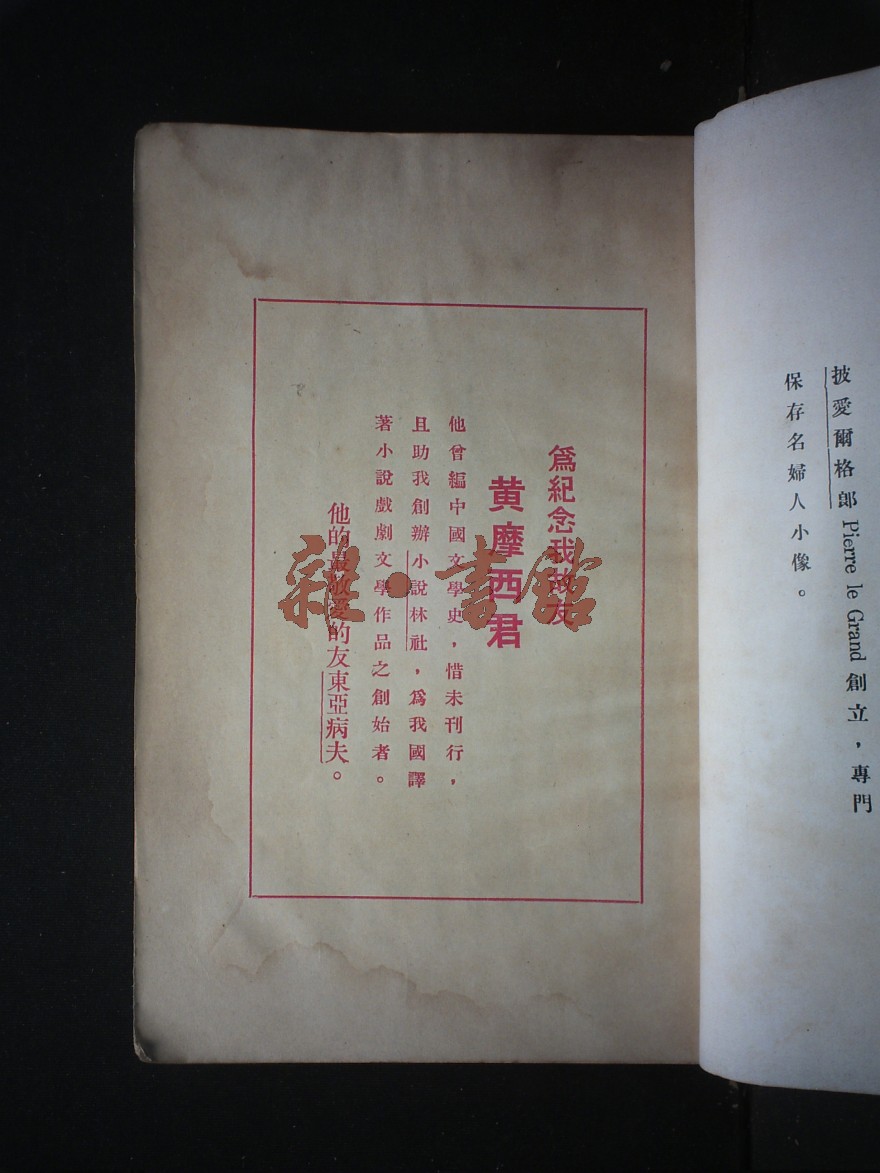 披愛爾格郎 Pierre le Grand 創立，專門
保存名婦人小像。
爲紀念我故友
黄摩西君
他曾編中國文學史，惜未刊行，
且助我創辦小說林社，爲我國譯
著小說戲劇文學作品之創始者。
他的最敬愛的友東亞病夫。
雜·書館